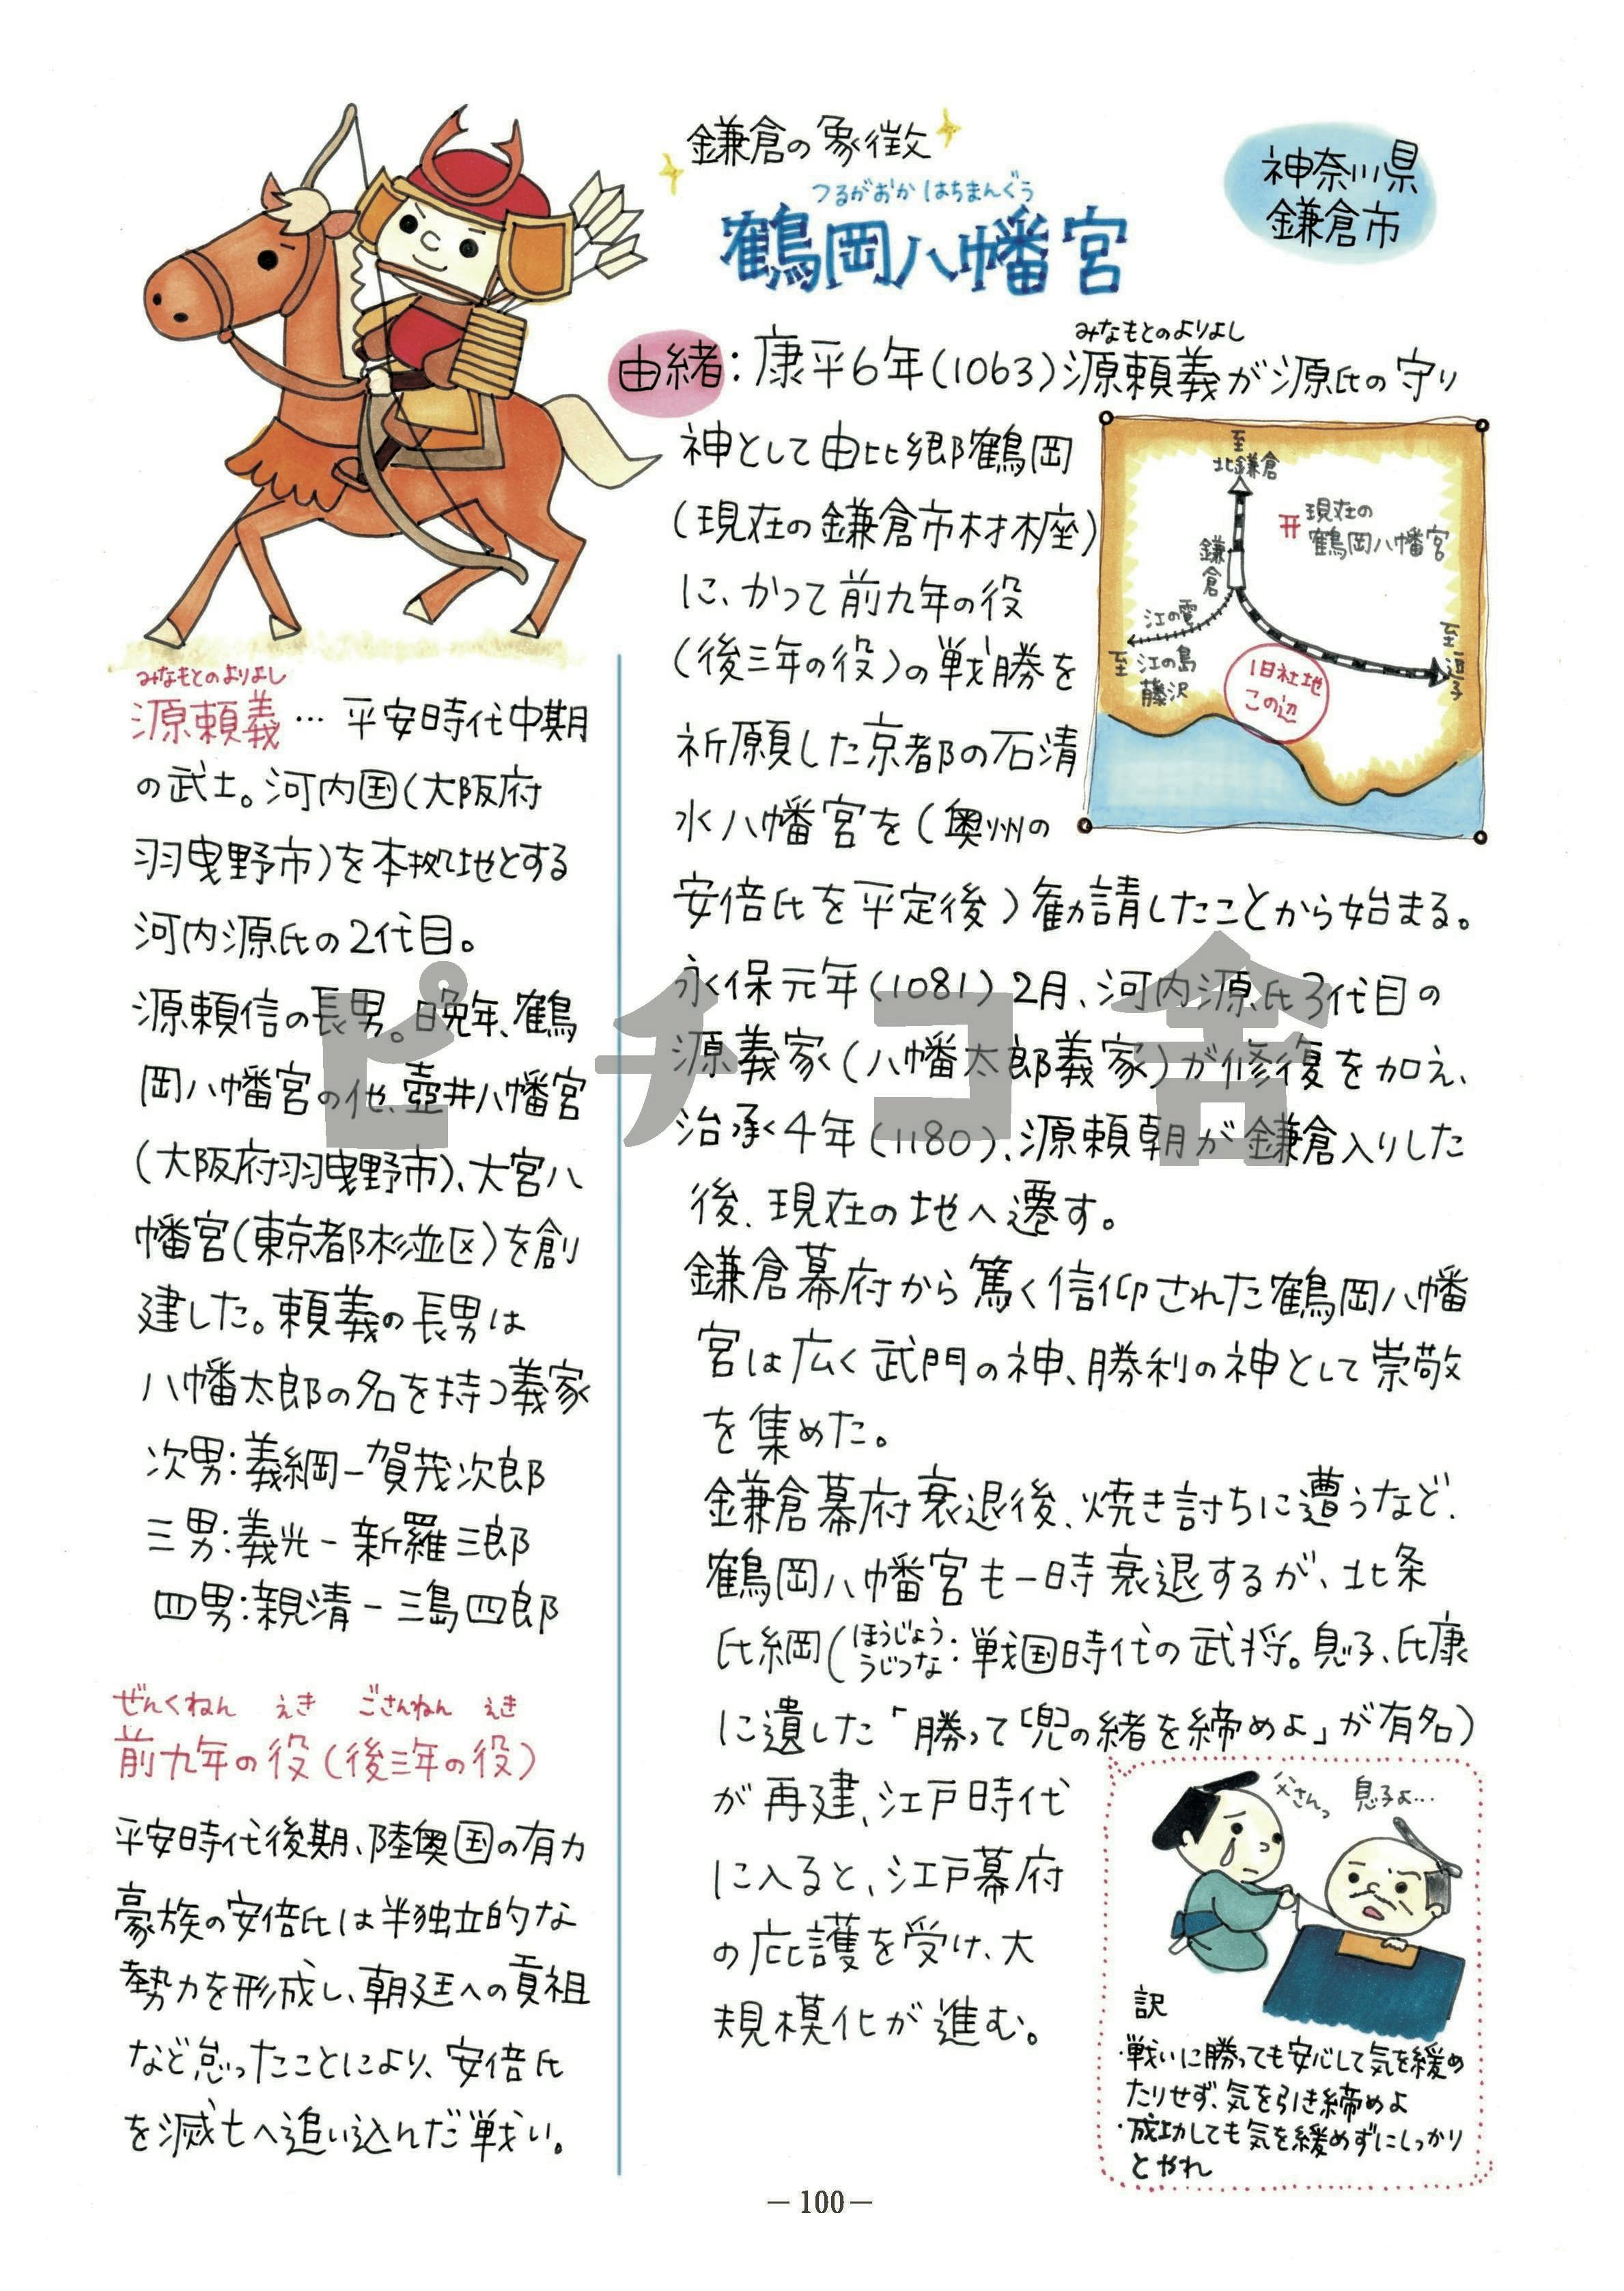 鎌倉の象徴
つるがおか はちまんぐう
鶴岡八幡宮
神奈川県
鎌倉市
みなもとのよりよし
由緒：康平6年(1063)源頼義が源氏の守り
神として由比郷鶴岡
(現在の鎌倉市材木座)
に、かつて前九年の役
(後三年の役)の戦勝を
祈願した京都の石清
水八幡宮を(奥州の
安倍氏を平定後)勧請したことから始まる。
永保元年(1081)2月、河内源氏3代目の
源義家(八幡太郎義家)が修復を加え、
治承4年(1180)、源頼朝が鎌倉入りした
後、現在の地へ遷す。
鎌倉幕府から篤く信仰された鶴岡八幡
宮は広く武門の神、勝利の神として崇敬
を集めた。
鎌倉幕府衰退後、焼き討ちに遭うなど、
鶴岡八幡宮も一時衰退するが、北条
氏綱(ほうじょううじつな：戦国時代の武将。息子、氏康
に遺した「勝って兜の緒を締めよ」が有名)
が再建、江戸時代
に入ると、江戸幕府
の庇護を受け、大
規模化が進む。
至
北鎌倉
現在の
鶴岡八幡宮
鎌倉
江の電
至
江の島
藤沢
至
逗子
旧社地
この辺
みなもとのよりよし
源頼義…平安時代中期
の武士。河内国(大阪府
羽曳野市)を本拠地とする
河内源氏の2代目。
源頼信の長男。晩年、鶴
岡八幡宮の他、壺井八幡宮
(大阪府羽曳野市)、大宮八
幡宮(東京都杉並区)を創
建した。頼義の長男は
八幡太郎の名を持つ義家
次男：義綱－賀茂次郎
三男：義光－新羅三郎
四男：親清－三島四郎
ぜんくねん えき ごさんねん えき
前九年の役(後三年の役)
平安時代後期、陸奥国の有力
豪族の安倍氏は半独立的な
勢力を形成し、朝廷への貢祖
など怠ったことにより、安倍氏
を滅亡へ追い込んだ戦い。
父さんっ
息子よ…
訳
・戦いに勝っても安心して気を緩め
たりせず、気を引き締めよ
・成功しても気を緩めずにしっかり
とやれ
ピチコ舎
－100－